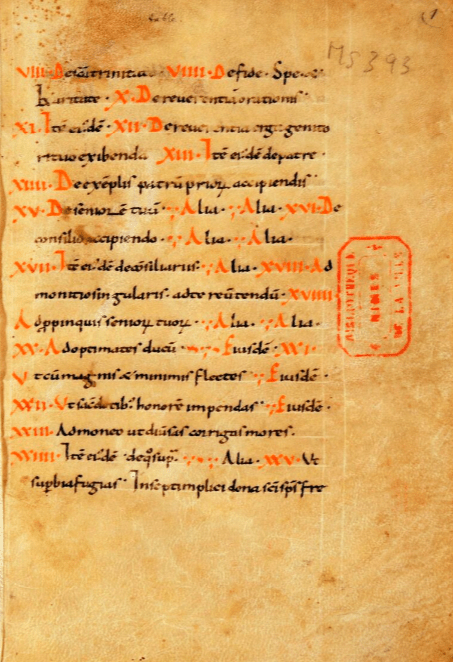 MS 393
VIII. De scā trinitate. VIIII. De fide. Spe. &
karitate. X. De reuerentia orationis
XI. Itē eiusdē. XII. De reuerentia erga genito
rituo exibenda XIII. Itē eiusdē de patre.
XIIII. De exēplis patrū priorꝝ accipiendis
XV. De seniorē tuū. Alia. Alia. XVI. De
consilio accipiendo. Alia. Alia.
XVII. Itē eiusdē de cōsiliariis. Alia. XVIII. Ad
monitio singularis. ad te reūtendū. XVIIII
Adppinquis senioꝝ tuoꝝ. Alia. Alia.
XX. Ad optimates ducū. Eiusdē. XXI.
Ut cū magnis & minimis flectes. Eiusdē.
XXII. Ut sacdotib; honorē impendas. Eiusdē.
XXIII. Admoneo ut diūsus corrigas mores.
XXIIII. Itē eiusdē de qͦ sup. Alia. XXV. Ut
supbia fugias. In septimplici dona scī sp̄s fre
BIBLIOTHEQUE
NIMES
DE LA VILLE